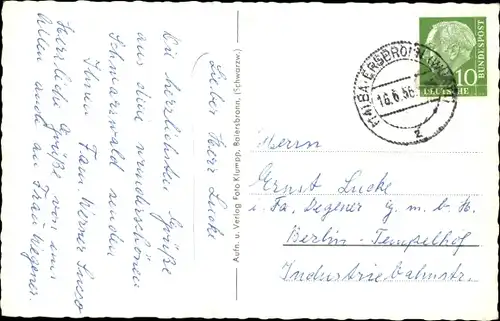 Lieber Herr Lucke
Die herzlichsten Grüße
aus dem wunderschönen
Schwarzwald senden
Ihnen Fam. Werner
Herrliche Grüße von uns
Allen auch an Frau Wegener.
Aufn. u. Verlag Foto Klumpp, Baiersbronn, (Schwarzw.)
16.6.56
z
10
DEUTSCHE
BUNDESPOST
Herrn
Ernst Lucke
i. Fa. Degener G. m. b. H.
Berlin-Tempelhof
Industriebahnstr.